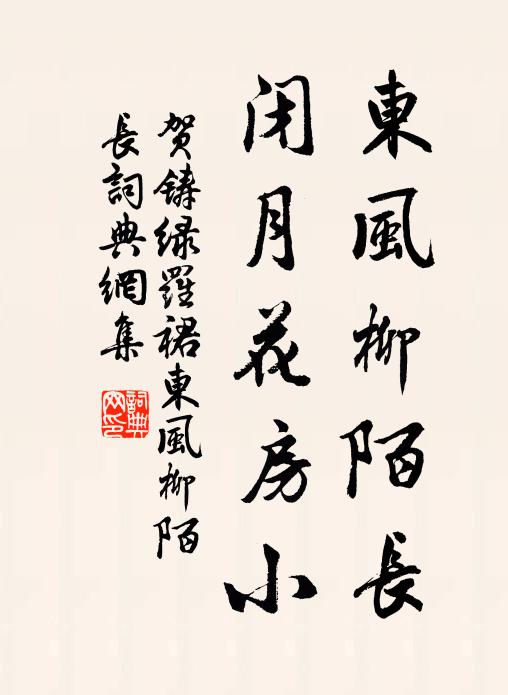 東風柳陌長
閉月花房小
贺鑄绿羅裙東風柳陌
長詞典網集
詞典
网印